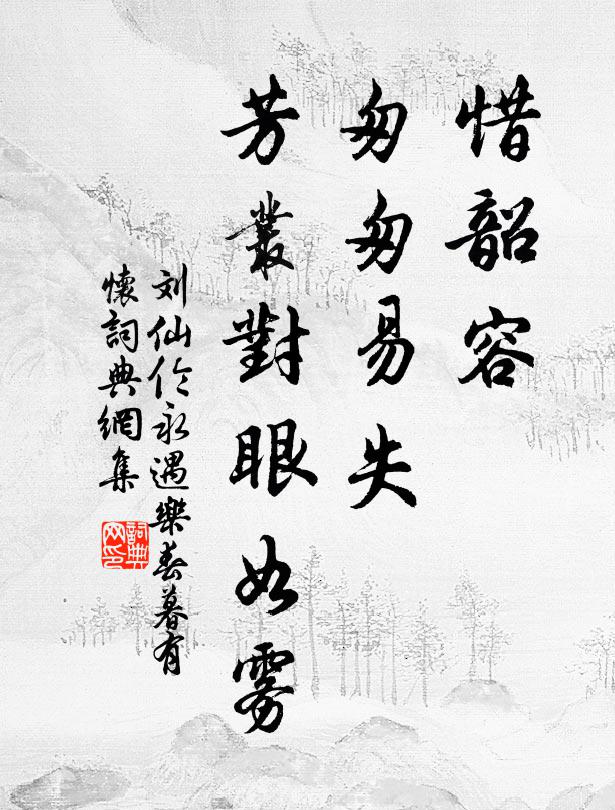 惜韶容
匆匆易失
芳叢對眼如霧
刘仙伦永遇樂春暮有
懷詞典網集
詞典
网印